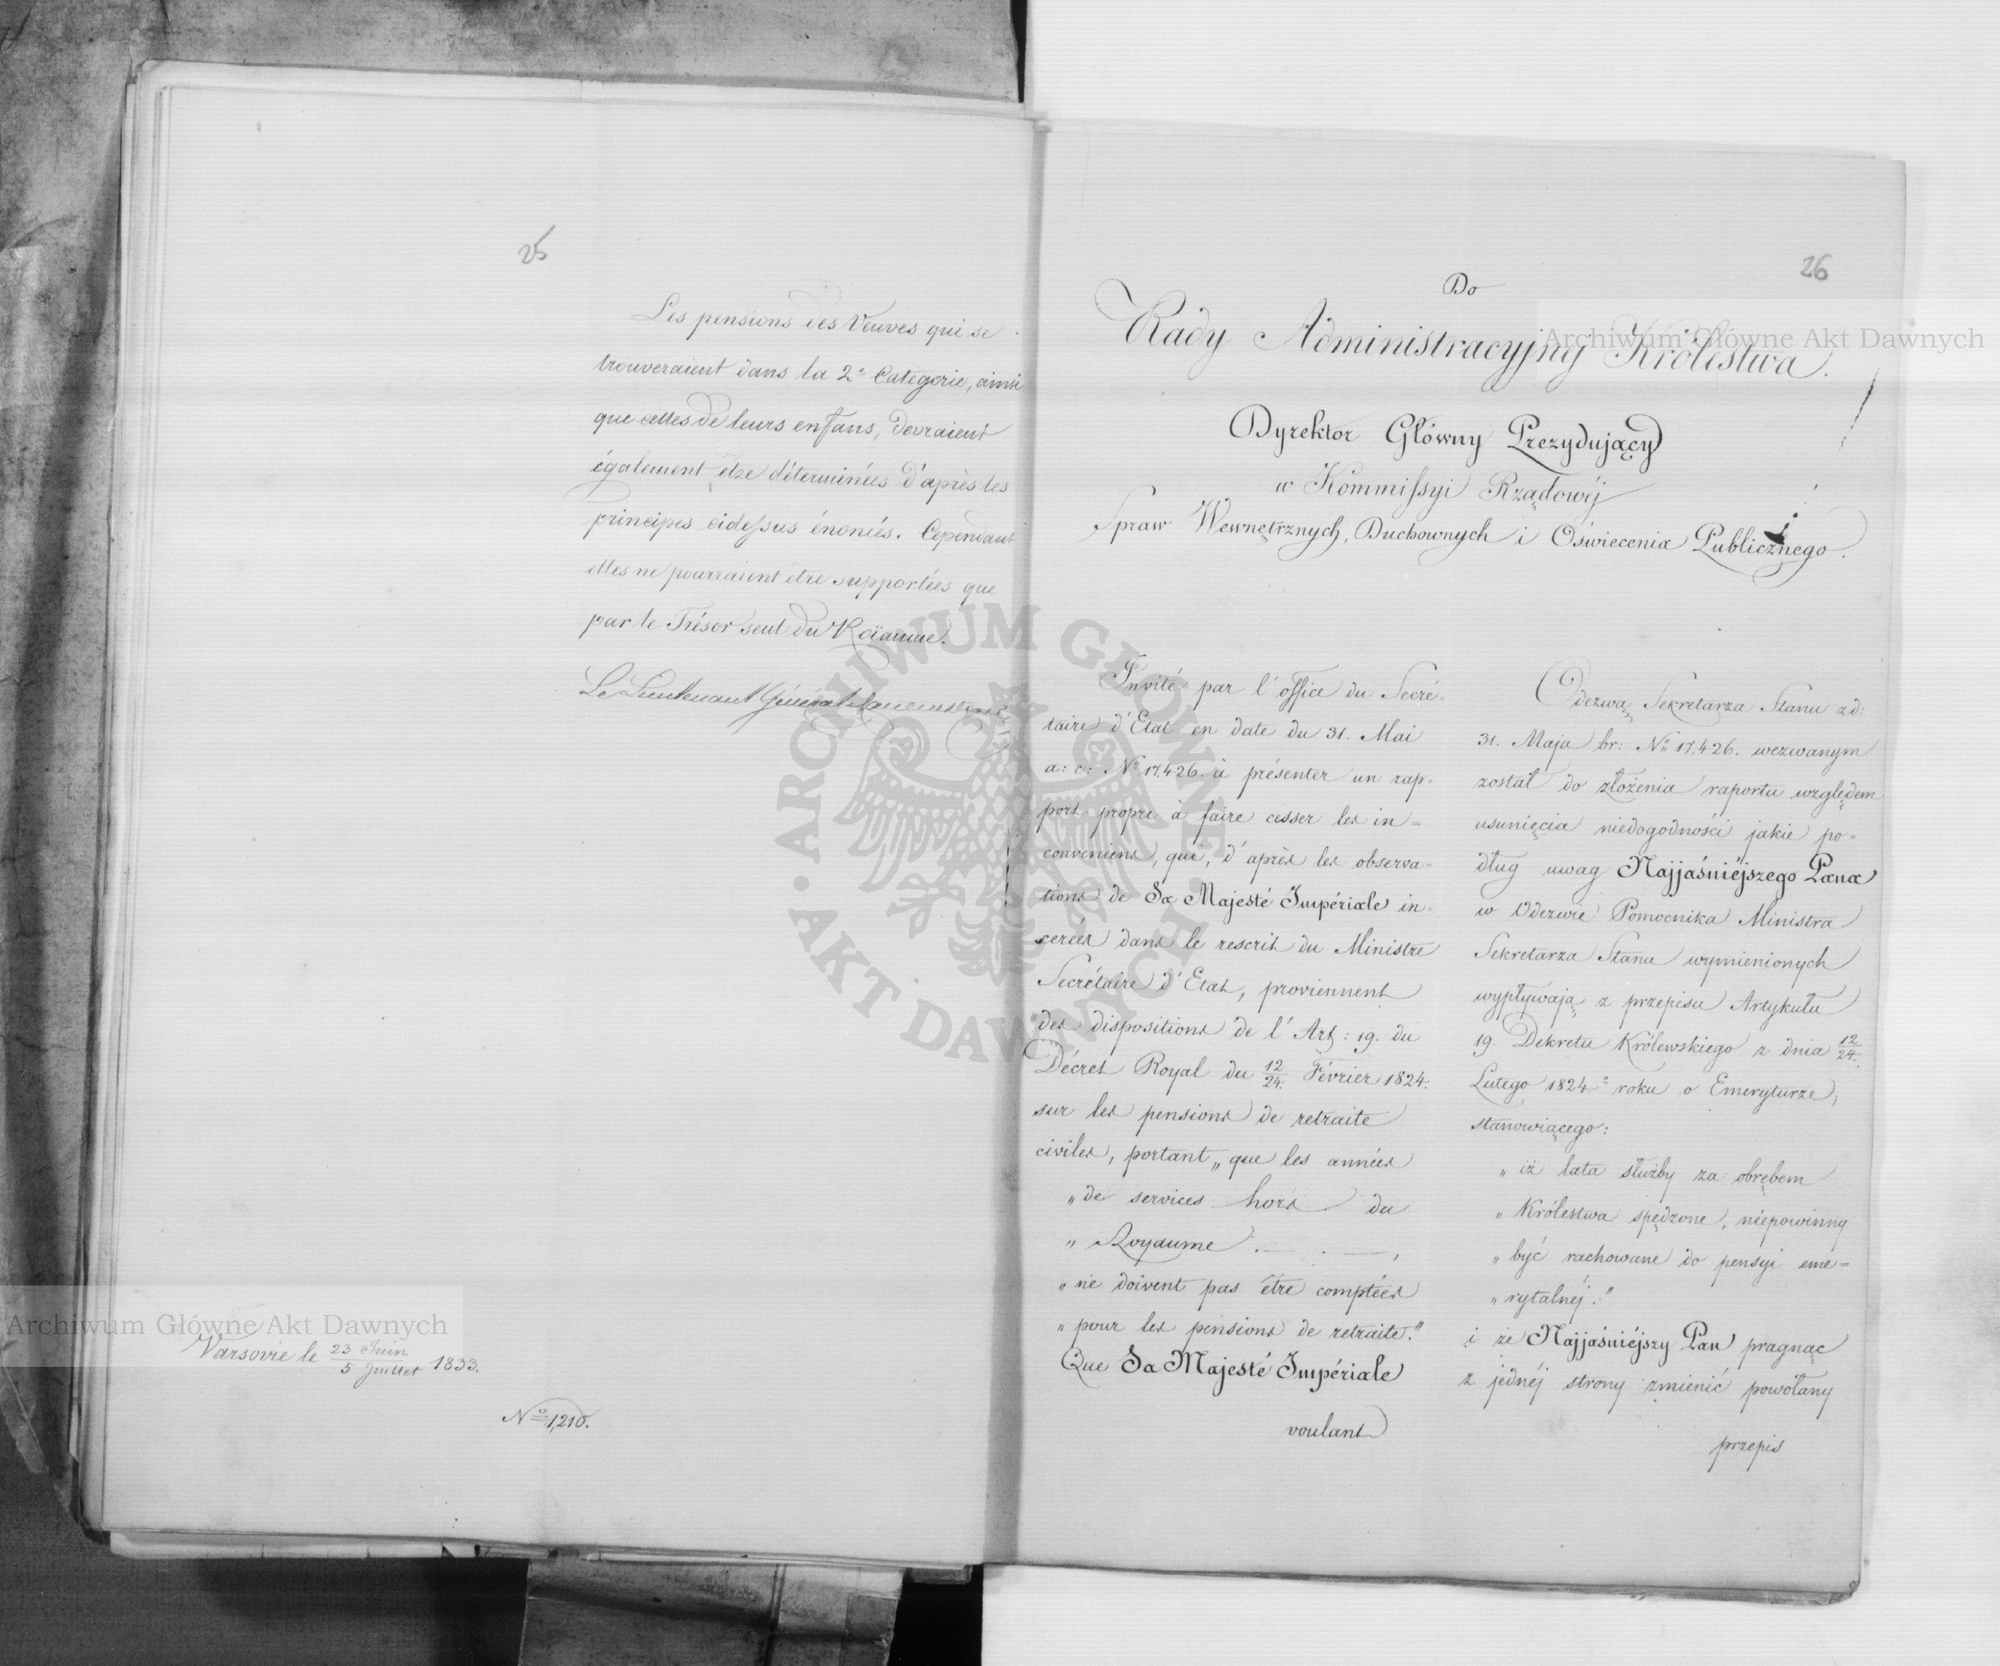 25
Les pensions des Veuves qui se
trouveraient dans la 2e Categorie, ainsi
que celles de leurs enfans, devraient
également être déterminées d'après les
principes cidessus énoncés. Cependant
elles ne pourraient être supportées que
par le Trésor seul du Roïaume.
Le Lieutenant Général
Varsovie le 23 Juin / 5 Juillet 1833.
No 1,210.
26
Do
Rady Administracyjnej Królestwa.
Dyrektor Główny Prezydujący
w Kommissyi Rządowéj
Spraw Wewnętrznych, Duchownych i Oświecenia Publicznego.
Invité par l'office du Secré-
taire d'Etat en date du 31. Mai
a: c: No 17,426. à présenter un rap-
port propre à faire cesser les in-
conveniens, qui, d'après les observa-
tions de Sa Majesté Impériale in-
serées dans le rescrit du Ministre
Secrétaire d'Etat, proviennent
des dispositions de l'Art: 19. du
Décret Royal du 12/24. Février 1824.
sur les pensions de retraite
civiles, portant „que les années
„de services hors du
„Royaume . — . — ,
„ne doivent pas être comptées
„pour les pensions de retraite."
Que Sa Majesté Impériale
voulant
Odezwą Sekretarza Stanu zd:
31. Maja br: No 17,426. wezwanym
został do złożenia raportu względem
usunięcia niedogodności jakie po-
dług uwag Najjaśniéjszego Pana
w Odezwie Pomocnika Ministra
Sekretarza Stanu wymienionych
wypływają z przepisu Artykułu
19. Dekretu Królewskiego z dnia 12/24.
Lutego 1824.o roku o Emeryturze,
stanowiącego:
„iż lata służby za obrębem
„Królestwa spędzone, niepowinny
„być rachowane do pensyi eme-
„rytalnéj."
i że Najjaśniéjszy Pan pragnąc
z jednéj strony zmienić powołany
przepis
Archiwum Główne Akt Dawnych
Archiwum Główne Akt Dawnych
ARCHIWUM GŁÓWNE · AKT DAWNYCH ·